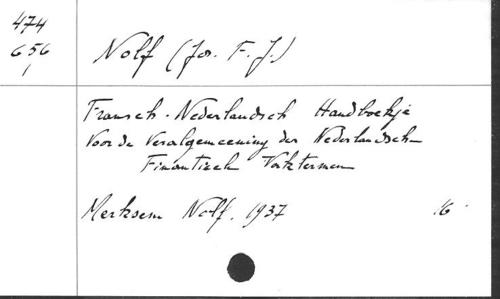 474
656
1
Nolf (Jos. F. J.)
Fransch-Nederlandsch Handboekje
voor de Veralgemeening der Nederlandsch
Financieele Vaktermen
Merksem Nolf. 1937
16°